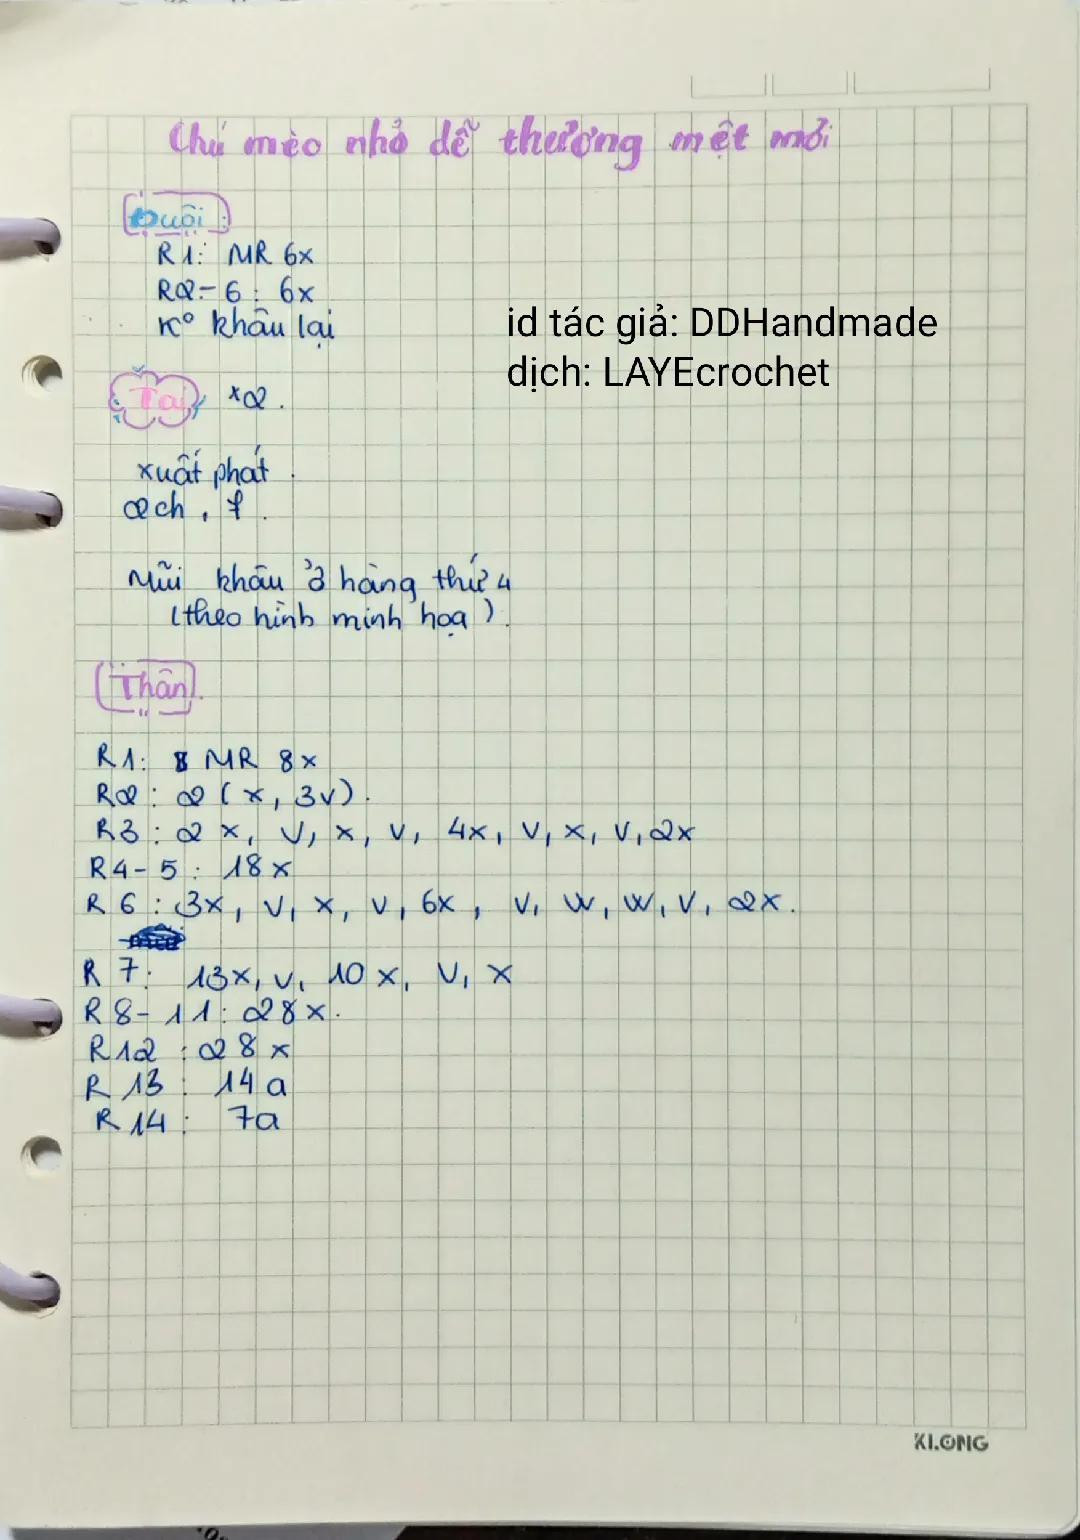 Chú mèo nhỏ dễ thương mệt mỏi
Đuôi:
R1: MR 6x
R2-6: 6x
K° khâu lại
id tác giả: DDHandmade
dịch: LAYEcrochet
Tai x2.
xuất phát.
2ch, F.
Mũi khâu ở hàng thứ 4
(theo hình minh hoạ).
Thân.
R1: 8 MR 8x
R2: 2(x, 3v).
R3: 2x, v, x, v, 4x, v, x, v, 2x
R4-5: 18x
R6: 3x, v, x, v, 6x, v, w, w, v, 2x.
R7: 13x, v, 10x, v, x
R8-11: 28x.
R12: 28x
R13: 14a
R14: 7a
KLONG